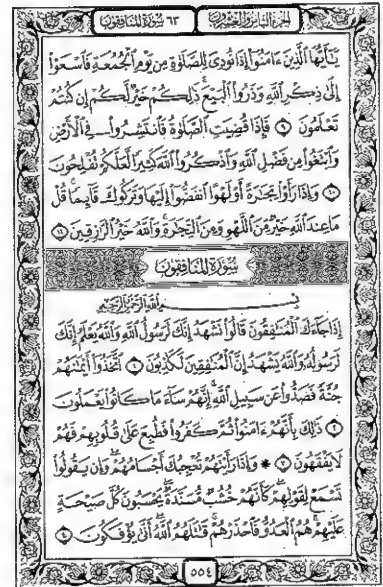 الجزء الثامن والعشرون
٦٣ سورة المنافقون
يَٰٓأَيُّهَا ٱلَّذِينَ ءَامَنُوٓا۟ إِذَا نُودِىَ لِلصَّلَوٰةِ مِن يَوْمِ ٱلْجُمُعَةِ فَٱسْعَوْا۟
إِلَىٰ ذِكْرِ ٱللَّهِ وَذَرُوا۟ ٱلْبَيْعَ ۚ ذَٰلِكُمْ خَيْرٌ لَّكُمْ إِن كُنتُمْ
تَعْلَمُونَ ٩ فَإِذَا قُضِيَتِ ٱلصَّلَوٰةُ فَٱنتَشِرُوا۟ فِى ٱلْأَرْضِ
وَٱبْتَغُوا۟ مِن فَضْلِ ٱللَّهِ وَٱذْكُرُوا۟ ٱللَّهَ كَثِيرًا لَّعَلَّكُمْ تُفْلِحُونَ
١٠ وَإِذَا رَأَوْا۟ تِجَٰرَةً أَوْ لَهْوًا ٱنفَضُّوٓا۟ إِلَيْهَا وَتَرَكُوكَ قَآئِمًا ۚ قُلْ
مَا عِندَ ٱللَّهِ خَيْرٌ مِّنَ ٱللَّهْوِ وَمِنَ ٱلتِّجَٰرَةِ ۚ وَٱللَّهُ خَيْرُ ٱلرَّٰزِقِينَ ١١
سُورَةُ المنَافِقُونَ
بِسْمِ ٱللَّهِ ٱلرَّحْمَٰنِ ٱلرَّحِيمِ
إِذَا جَآءَكَ ٱلْمُنَٰفِقُونَ قَالُوا۟ نَشْهَدُ إِنَّكَ لَرَسُولُ ٱللَّهِ ۗ وَٱللَّهُ يَعْلَمُ إِنَّكَ
لَرَسُولُهُۥ وَٱللَّهُ يَشْهَدُ إِنَّ ٱلْمُنَٰفِقِينَ لَكَٰذِبُونَ ١ ٱتَّخَذُوٓا۟ أَيْمَٰنَهُمْ
جُنَّةً فَصَدُّوا۟ عَن سَبِيلِ ٱللَّهِ ۚ إِنَّهُمْ سَآءَ مَا كَانُوا۟ يَعْمَلُونَ
٢ ذَٰلِكَ بِأَنَّهُمْ ءَامَنُوا۟ ثُمَّ كَفَرُوا۟ فَطُبِعَ عَلَىٰ قُلُوبِهِمْ فَهُمْ
لَا يَفْقَهُونَ ٣ ۞ وَإِذَا رَأَيْتَهُمْ تُعْجِبُكَ أَجْسَامُهُمْ ۖ وَإِن يَقُولُوا۟
تَسْمَعْ لِقَوْلِهِمْ ۖ كَأَنَّهُمْ خُشُبٌ مُّسَنَّدَةٌ ۖ يَحْسَبُونَ كُلَّ صَيْحَةٍ
عَلَيْهِمْ ۚ هُمُ ٱلْعَدُوُّ فَٱحْذَرْهُمْ ۚ قَٰتَلَهُمُ ٱللَّهُ ۖ أَنَّىٰ يُؤْفَكُونَ ٤
٥٥٤